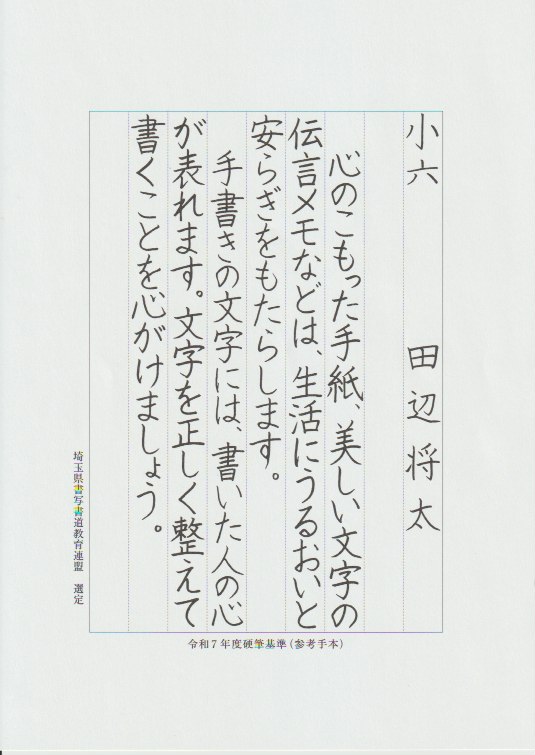 小六　田辺将太
心のこもった手紙、美しい文字の
伝言メモなどは、生活にうるおいと
安らぎをもたらします。
手書きの文字には、書いた人の心
が表れます。文字を正しく整えて
書くことを心がけましょう。
埼玉県書写書道教育連盟　選定
令和7年度硬筆基準(参考手本)